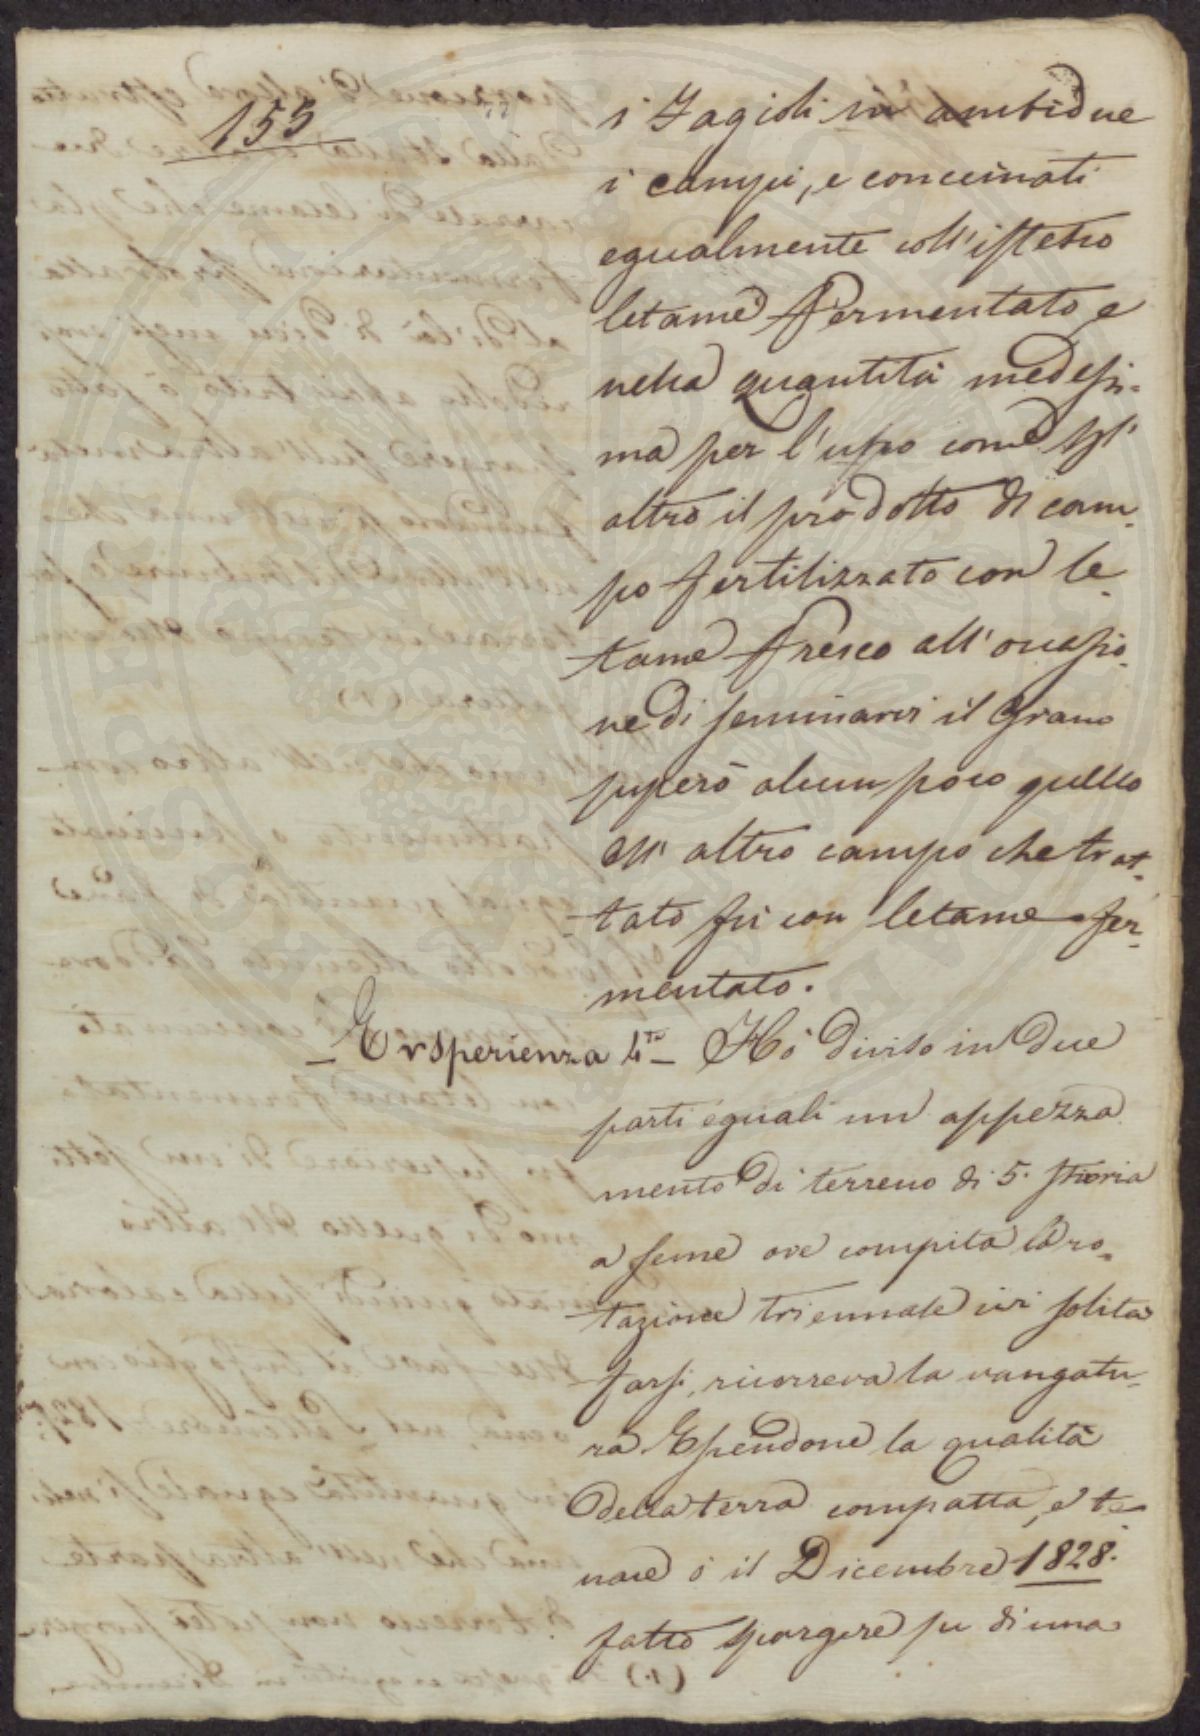 155
i Fagioli in ambidue
i campi, e concimati
egualmente coll'istesso
letame fermentato, e
nella quantità medesi-
ma per l'uso come pl'
altro il prodotto di cam-
po fertilizzato con le-
tame fresco all'occasio-
ne di seminarvi il Grano
superò alcun poco quello
dell' altro campo che trat-
tato fù con letame fer-
mentato.
- Esperienza 4.ta - Hò diviso in due
parti eguali un appezza
mento di terreno di 5. stioria
a seme ove compita la ro-
tazione triennale ivi solita
farsi, ricorreva la vangatu-
ra Essendone la qualità
della terra compatta, e te-
nace ò il Dicembre 1828.
fatto spargere su di una